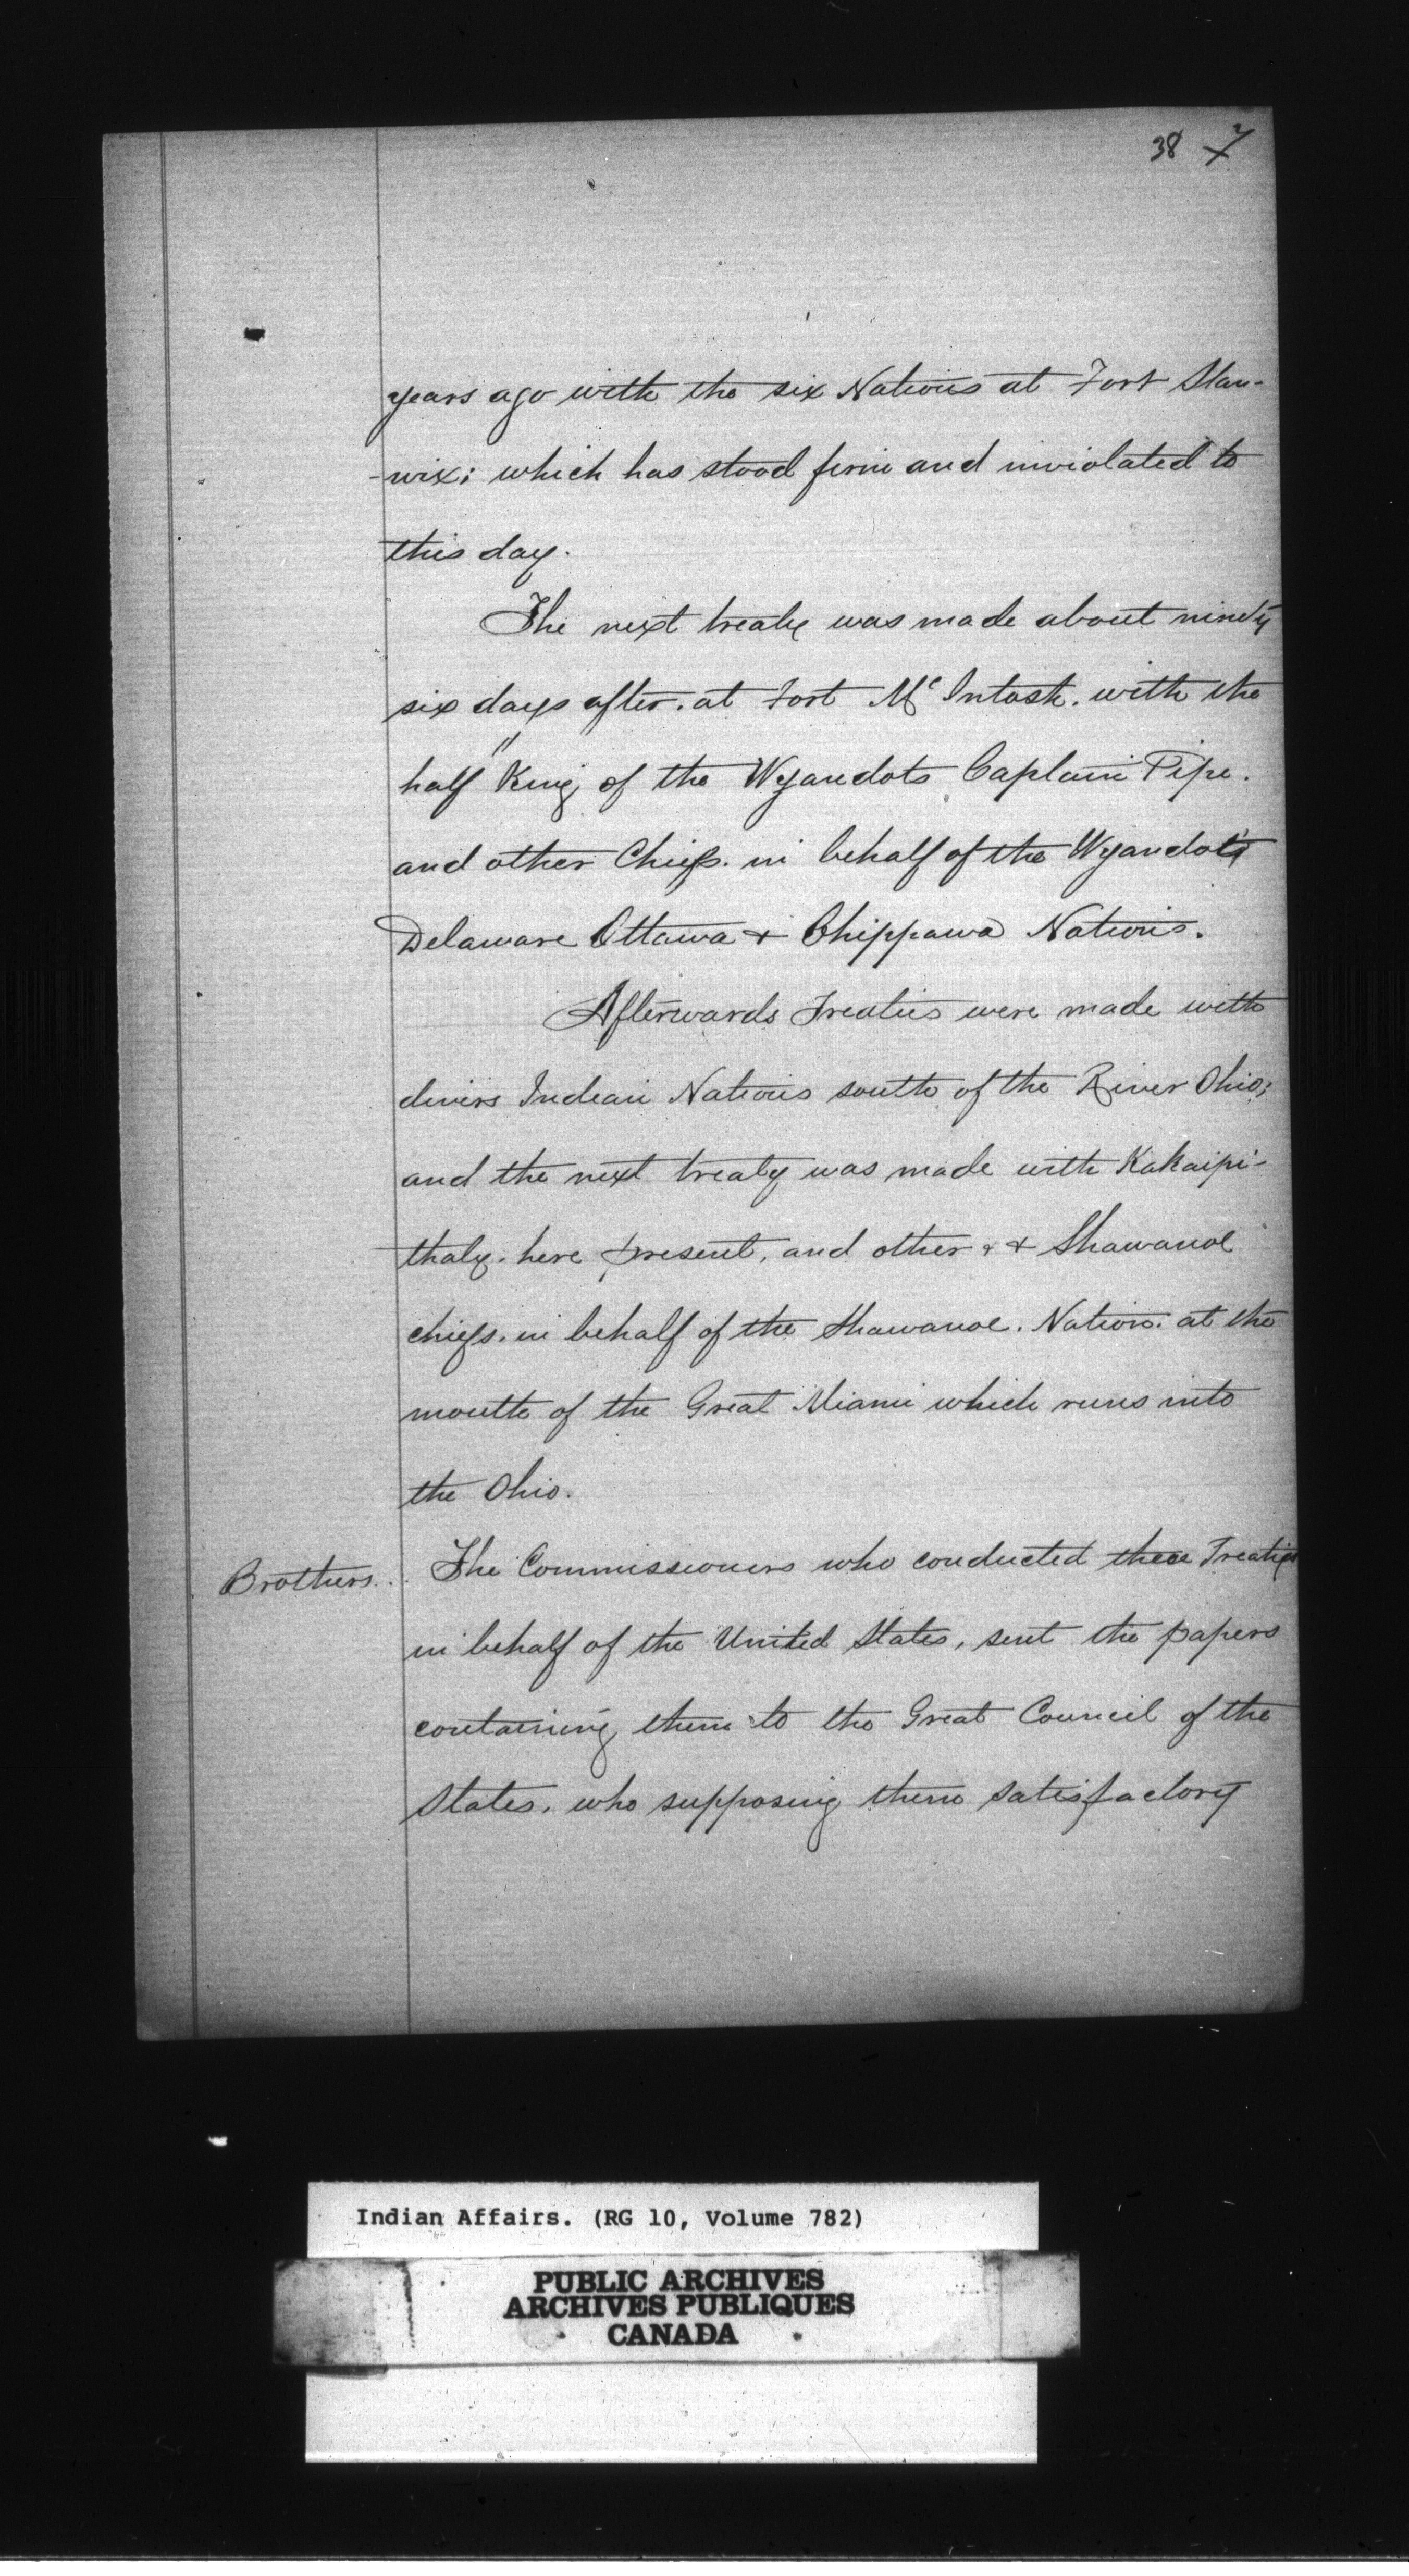 38 7
years ago with the six Nations at Fort Stan-
-nix; which has stood firm and inviolated to
this day.
The next treaty was made about ninety
six days after. at Fort Mc Intosh. with the
half " King of the Wyandots Captain Pipe.
and other Chiefs. in behalf of the Wyandots
Delaware Ottawa + Chippawa Nations.
Afterwards Treaties were made with
divers Indian Nations south of the River Ohio;
and the next treaty was made with Kakaipi-
thaly. here present, and other + + Shawanoe
chiefs. in behalf of the Shawanoe. Nation. at the
mouth of the Great Miami which runs into
the Ohio.
Brothers. The Commissioners who conducted these Treaties
in behalf of the United States, sent the papers
containing them to the Great Council of the
States. who supposing them satisfactory
Indian Affairs. (RG 10, Volume 782)
PUBLIC ARCHIVES
ARCHIVES PUBLIQUES
CANADA